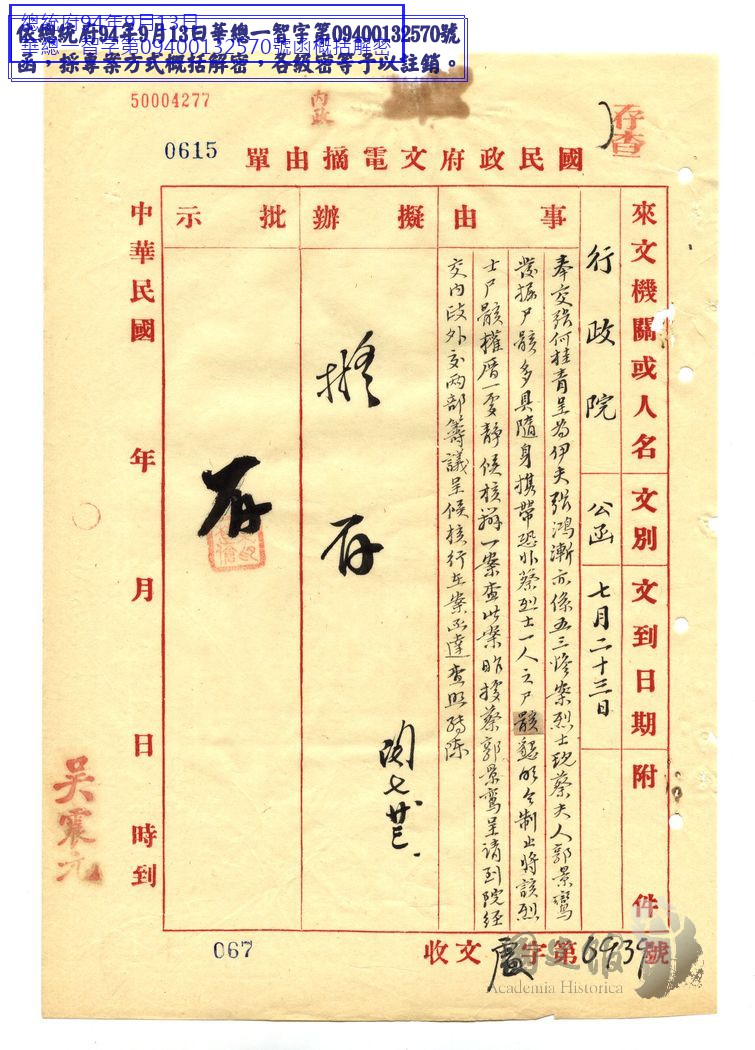 總統府94年9月13日
華總一智字第09400132570號函概括解密
依總統府94年9月13日華總一智字第09400132570號
函，採專案方式概括解密，各級密等予以註銷。
50004277
內政
存查
0615
國民政府文電摘由單
來文機關或人名
行政院
文別
公函
文到日期
七月二十三日
附件
事由
奉交張何桂青呈為伊夫張鴻漸亦係五三慘案烈士現蔡夫人郭景鸞
發掘尸骸多具隨身攜帶恐非蔡烈士一人之尸骸懇明令制止將該烈
士尸骸權厝一處靜候核辦一案查此案昨據蔡郭景鸞呈請到院經
交內政外交兩部籌議呈候核行在案函達查照轉陳
擬辦
擬存
批示
存
中華民國 年 月 日 時到
吳震元
067
收文 字第6939號
國史館
Academia Historica